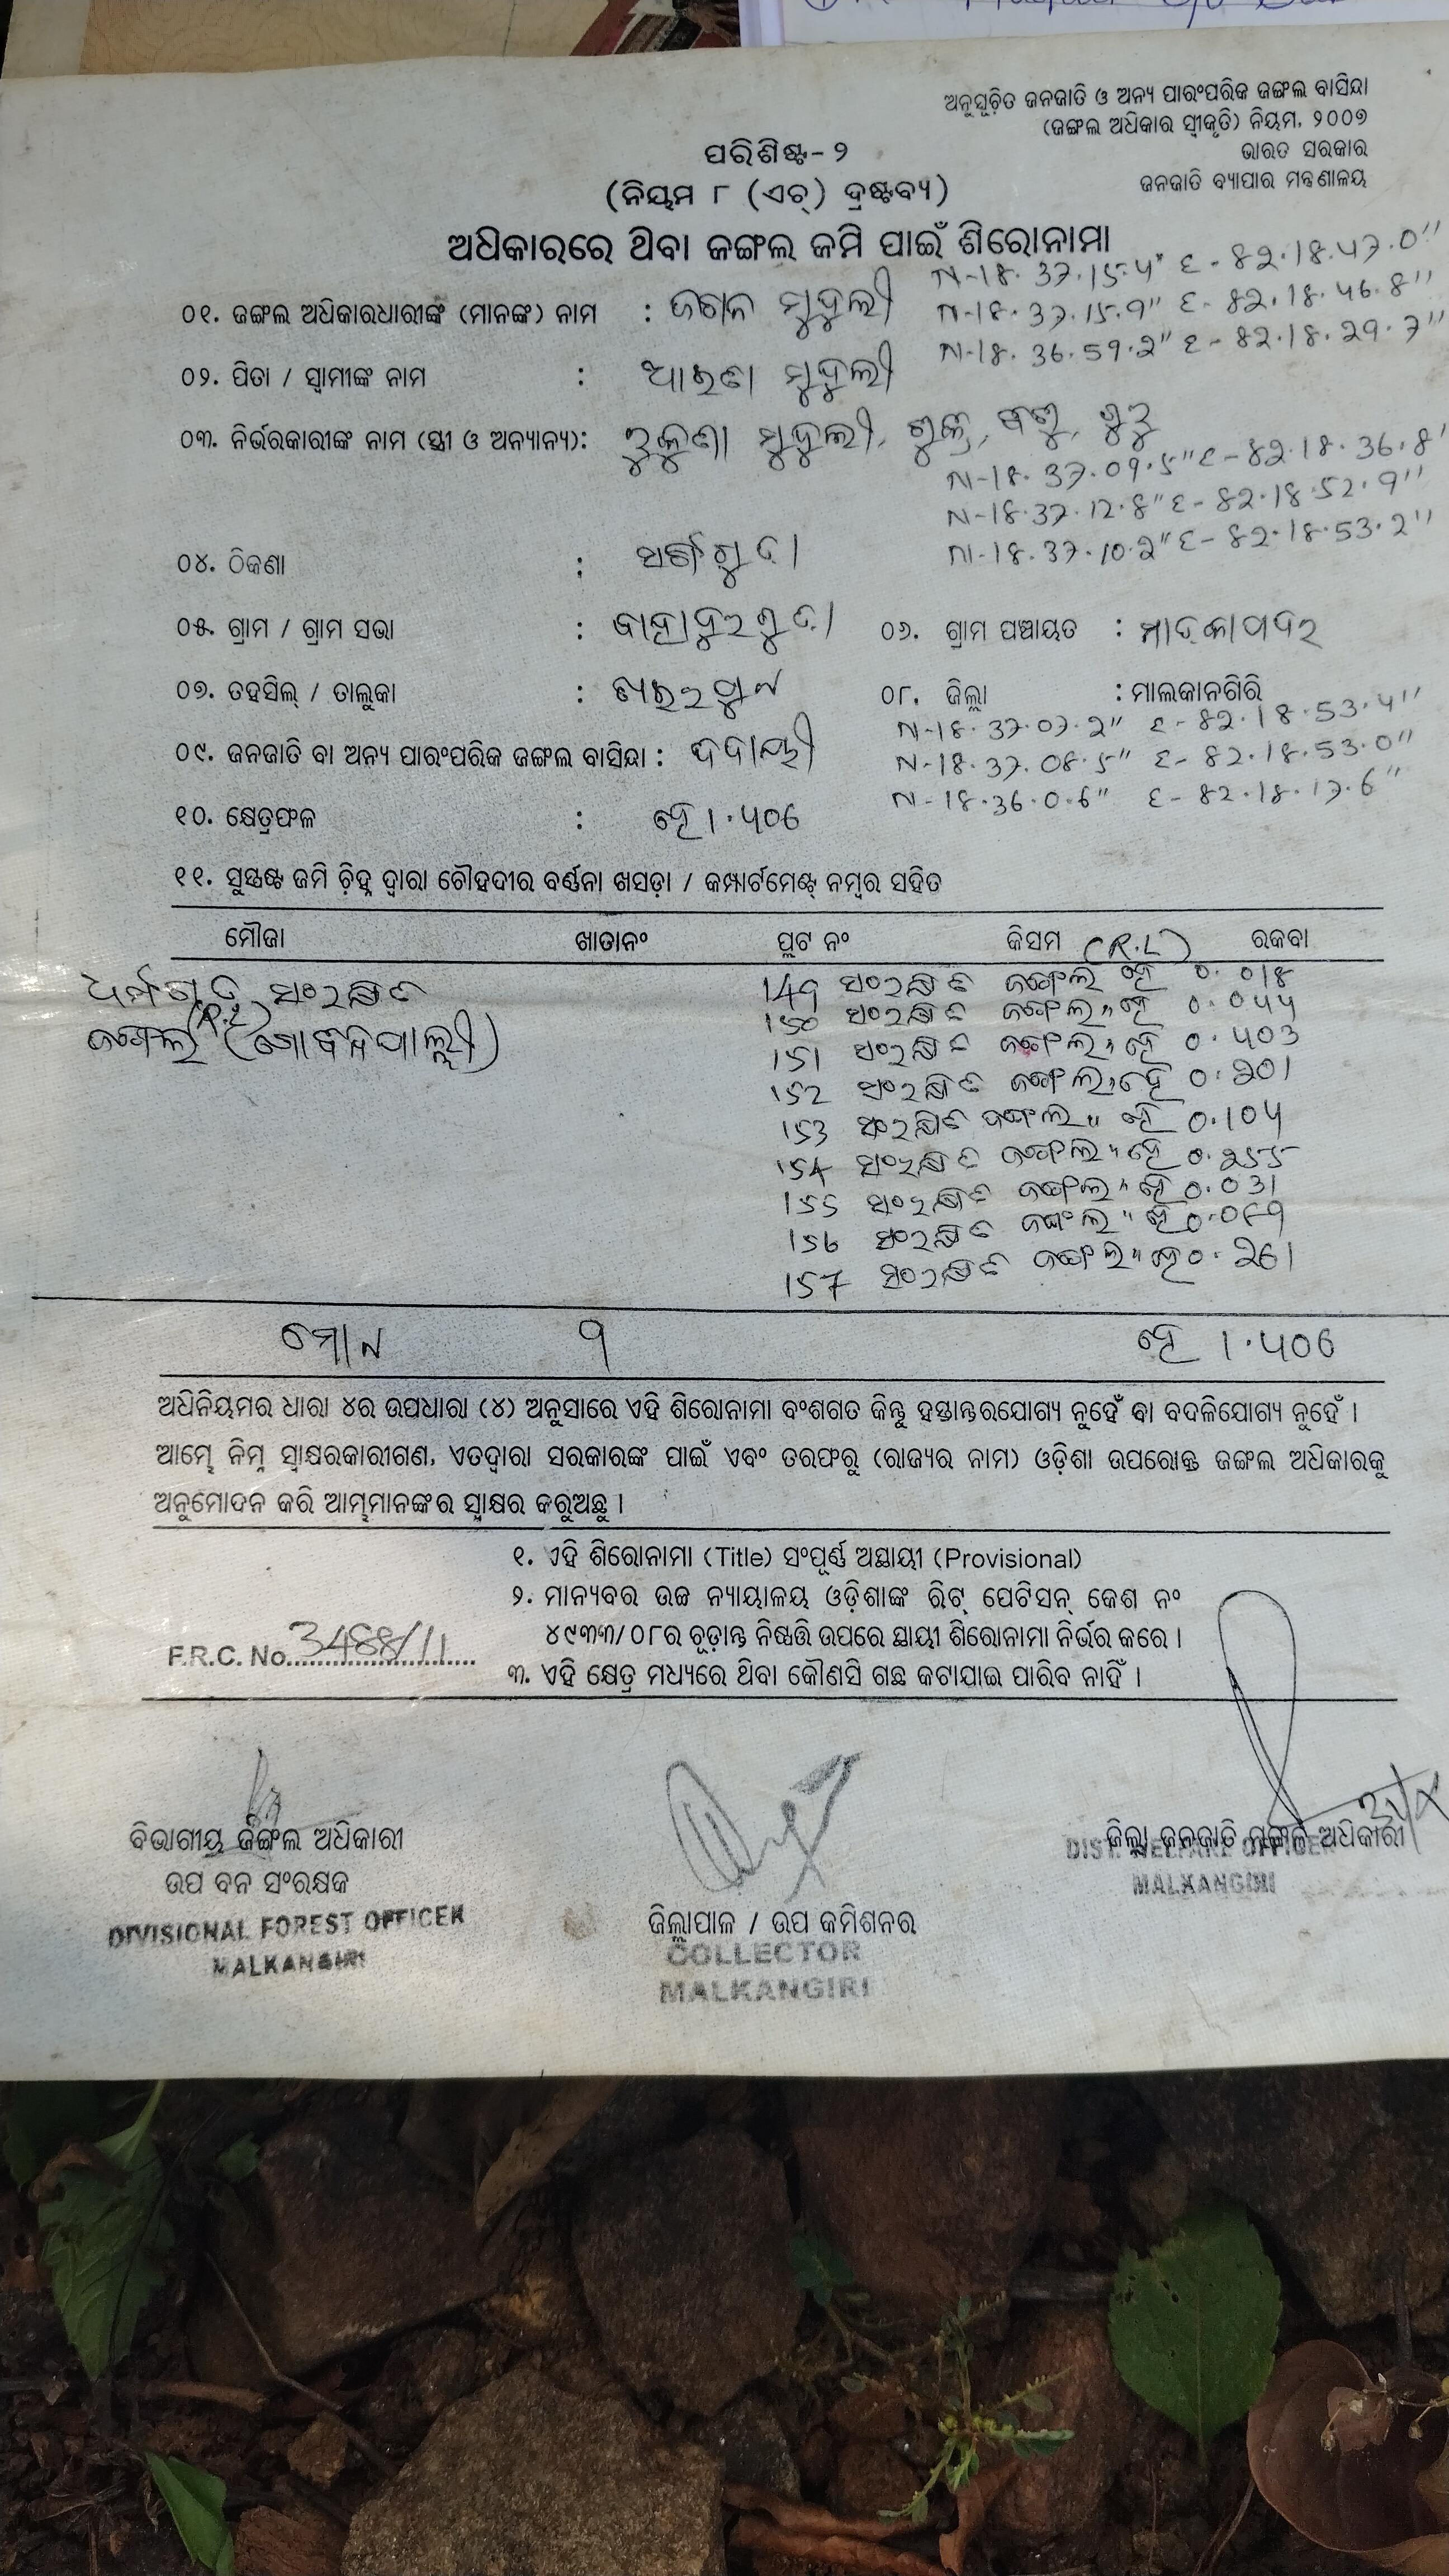 ଅନୁସୂଚିତ ଜନଜାତି ଓ ଅନ୍ୟ ପାରଂପରିକ ଜଙ୍ଗଲ ବାସିନ୍ଦା
(ଜଙ୍ଗଲ ଅଧିକାର ସ୍ୱୀକୃତି) ନିୟମ, ୨୦୦୭
ଭାରତ ସରକାର
ଜନଜାତି ବ୍ୟାପାର ମନ୍ତ୍ରଣାଳୟ
ପରିଶିଷ୍ଟ-୨
(ନିୟମ ୮ (ଏଚ୍) ଦ୍ରଷ୍ଟବ୍ୟ)
ଅଧିକାରରେ ଥିବା ଜଙ୍ଗଲ ଜମି ପାଇଁ ଶିରୋନାମା
N-18.37.15.4" E-82.18.47.0"
୦୧. ଜଙ୍ଗଲ ଅଧିକାରଧାରୀଙ୍କ (ମାନଙ୍କ) ନାମ : ଜଗନ ମୁଦୁଲୀ N-18.37.15.9" E-82.18.46.8"
N-18.36.59.2" E-82.18.29.7"
୦୨. ପିତା / ସ୍ୱାମୀଙ୍କ ନାମ : ମୁଦୁଲୀ
୦୩. ନିର୍ଭରକାରୀଙ୍କ ନାମ (ସ୍ତ୍ରୀ ଓ ଅନ୍ୟାନ୍ୟ): ମୁଦୁଲୀ,
N-18.37.09.5" E-82.18.36.8"
N-18.37.12.8" E-82.18.52.9"
N-18.37.10.2" E-82.18.53.2"
୦୪. ଠିକଣା :
୦୫. ଗ୍ରାମ / ଗ୍ରାମ ସଭା : ବାହାଦୁରଗୁଡା ୦୬. ଗ୍ରାମ ପଞ୍ଚାୟତ : ମାଦକାପଦର
୦୭. ତହସିଲ୍ / ତାଲୁକା : ଖଇରପୁଟ ୦୮. ଜିଲ୍ଲା : ମାଲକାନଗିରି
N-18.37.07.2" E-82.18.53.4"
୦୯. ଜନଜାତି ବା ଅନ୍ୟ ପାରଂପରିକ ଜଙ୍ଗଲ ବାସିନ୍ଦା : N-18.37.08.5" E-82.18.53.0"
N-18.36.0.6" E-82.18.17.6"
୧୦. କ୍ଷେତ୍ରଫଳ : ହେ 1.406
୧୧. ସୁସ୍ପଷ୍ଟ ଜମି ଚିହ୍ନ ଦ୍ୱାରା ଚୌହଦୀର ବର୍ଣ୍ଣନା ଖସଡ଼ା / କମ୍ପାର୍ଟମେଣ୍ଟ୍ ନମ୍ବର ସହିତ
ମୌଜା ଖାତାନଂ ପ୍ଲଟ ନଂ କିସମ (R.L) ରକବା
ସଂରକ୍ଷିତ 149 ସଂରକ୍ଷିତ ଜଙ୍ଗଲ ହେ 0.018
ଜଙ୍ଗଲ 150 ସଂରକ୍ଷିତ ଜଙ୍ଗଲ " ହେ 0.044
151 ସଂରକ୍ଷିତ ଜଙ୍ଗଲ " ହେ 0.403
152 ସଂରକ୍ଷିତ ଜଙ୍ଗଲ " ହେ 0.201
153 ସଂରକ୍ଷିତ ଜଙ୍ଗଲ " ହେ 0.104
154 ସଂରକ୍ଷିତ ଜଙ୍ଗଲ " ହେ 0.255
155 ସଂରକ୍ଷିତ ଜଙ୍ଗଲ " ହେ 0.031
156 ସଂରକ୍ଷିତ ଜଙ୍ଗଲ " ହେ 0.089
157 ସଂରକ୍ଷିତ ଜଙ୍ଗଲ " ହେ 0.261
ମୋଟ 9 ହେ 1.406
ଅଧିନିୟମର ଧାରା ୪ର ଉପଧାରା (୪) ଅନୁସାରେ ଏହି ଶିରୋନାମା ବଂଶଗତ କିନ୍ତୁ ହସ୍ତାନ୍ତରଯୋଗ୍ୟ ନୁହେଁ ବା ବଦଳିଯୋଗ୍ୟ ନୁହେଁ ।
ଆମ୍ଭେ ନିମ୍ନ ସ୍ୱାକ୍ଷରକାରୀଗଣ, ଏତଦ୍ୱାରା ସରକାରଙ୍କ ପାଇଁ ଏବଂ ତରଫରୁ (ରାଜ୍ୟର ନାମ) ଓଡ଼ିଶା ଉପରୋକ୍ତ ଜଙ୍ଗଲ ଅଧିକାରକୁ
ଅନୁମୋଦନ କରି ଆମ୍ଭମାନଙ୍କର ସ୍ୱାକ୍ଷର କରୁଅଛୁ ।
୧. ଏହି ଶିରୋନାମା (Title) ସଂପୂର୍ଣ୍ଣ ଅସ୍ଥାୟୀ (Provisional)
୨. ମାନ୍ୟବର ଉଚ୍ଚ ନ୍ୟାୟାଳୟ ଓଡ଼ିଶାଙ୍କ ରିଟ୍ ପେଟିସନ୍ କେଶ ନଂ
୪୯୩୩/୦୮ର ଚୂଡ଼ାନ୍ତ ନିଷ୍ପତ୍ତି ଉପରେ ସ୍ଥାୟୀ ଶିରୋନାମା ନିର୍ଭର କରେ ।
F.R.C. No. 3488/11
୩. ଏହି କ୍ଷେତ୍ର ମଧ୍ୟରେ ଥିବା କୌଣସି ଗଛ କଟାଯାଇ ପାରିବ ନାହିଁ ।
ବିଭାଗୀୟ ଜଙ୍ଗଲ ଅଧିକାରୀ
ଉପ ବନ ସଂରକ୍ଷକ
DIVISIONAL FOREST OFFICER
MALKANGIRI
ଜିଲ୍ଲାପାଳ / ଉପ କମିଶନର
COLLECTOR
MALKANGIRI
ଜିଲ୍ଲା ଜନଜାତି ମଙ୍ଗଳ ଅଧିକାରୀ
DIST. WELFARE OFFICER
MALKANGIRI